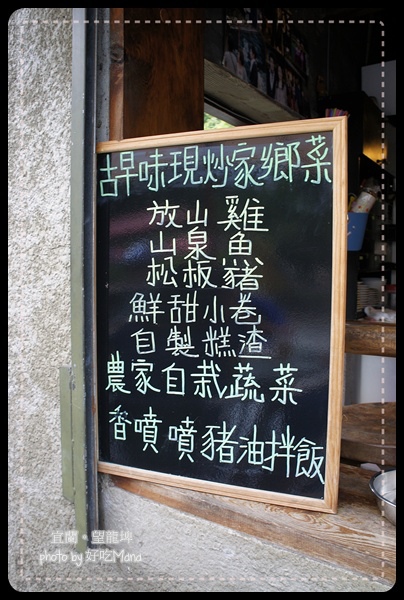 古早味現炒家鄉菜
放山雞
山泉魚
松板豬
鮮甜小卷
自製糕渣
農家自栽蔬菜
香噴噴豬油拌飯
宜蘭•望龍埤
photo by 好吃Mana